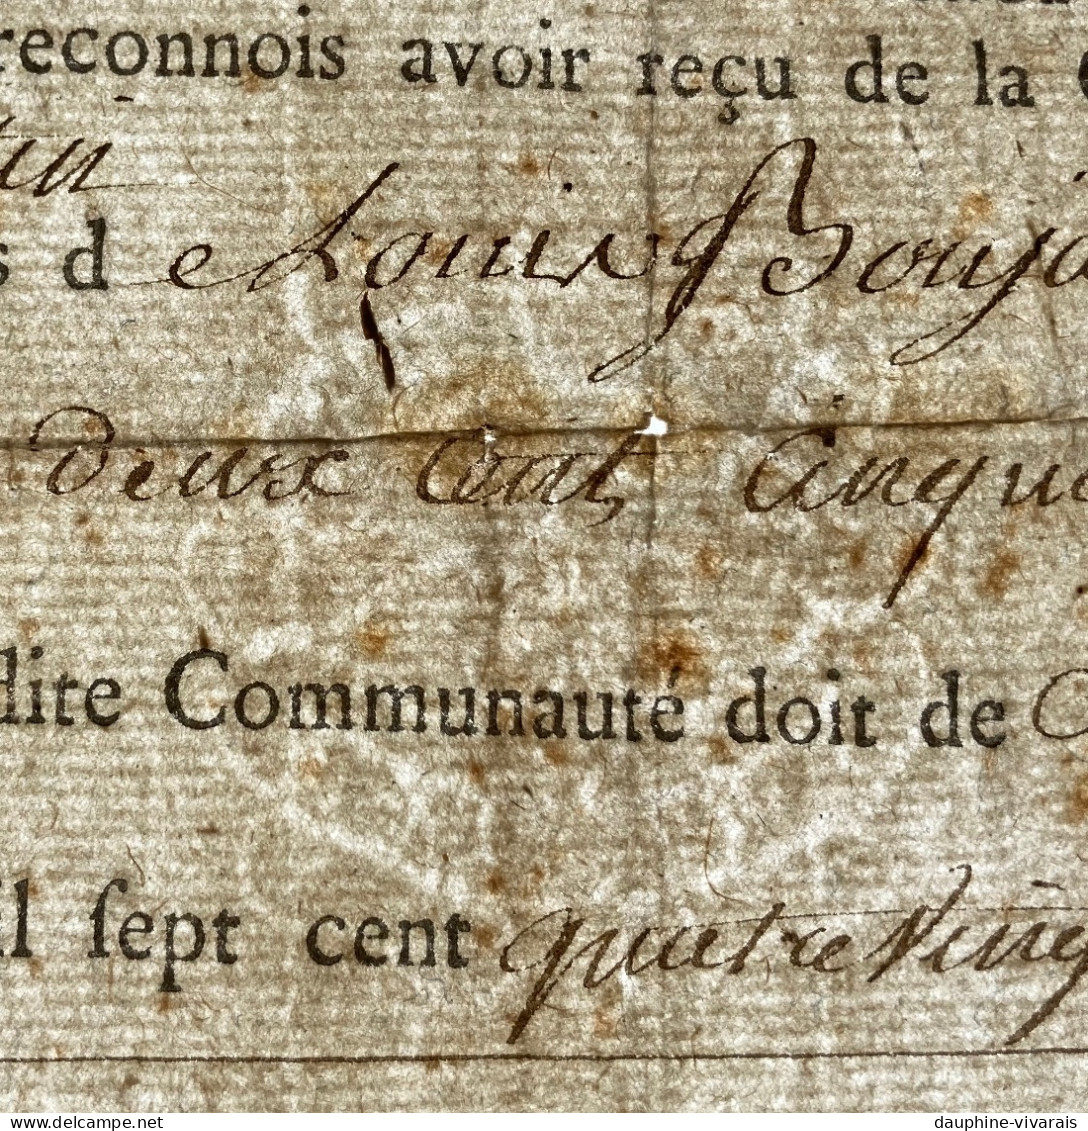 reconnois avoir reçu de la C
tin
s d e Louis Boujo
deux Cent Cinqua
dite Communauté doit de
il ſept cent quatre Ving
dauphine-vivarais